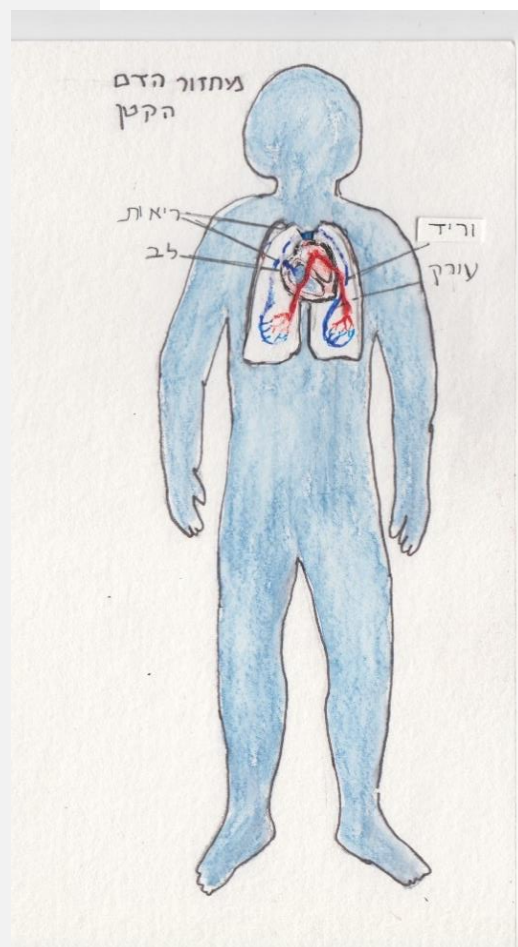 מחזור הדם
הקטן
ריאות
לב
וריד
עורק